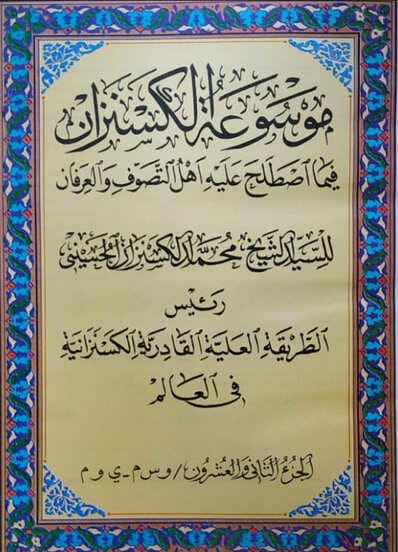 موسوعة الكسنزان
فيما اصطلح عليه أهل التصوف والعرفان
للسيد الشيخ محمد الكسنزان الحسيني
رئيس
الطريقة العلية القادرية الكسنزانية
في العالم
الجزء الثاني والعشرون / و س م - ي و م